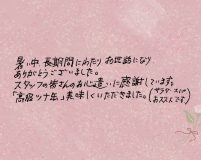 暑い中、長期間にわたり お世話になり
ありがとうございました。
スタッフの皆さんのお心遣いに感謝しています。
「高宿ツナ缶」美味しくいただきました。(サラダ・スープ
おススメです)